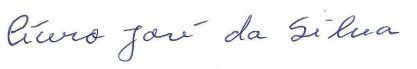 Cícero José da Silva